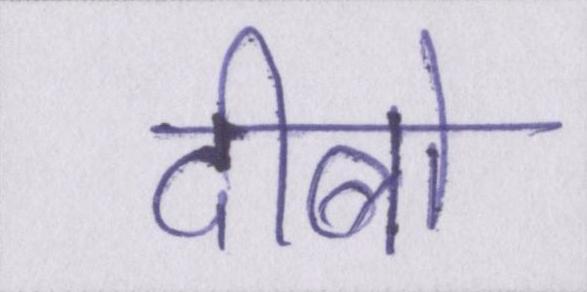 दीबो